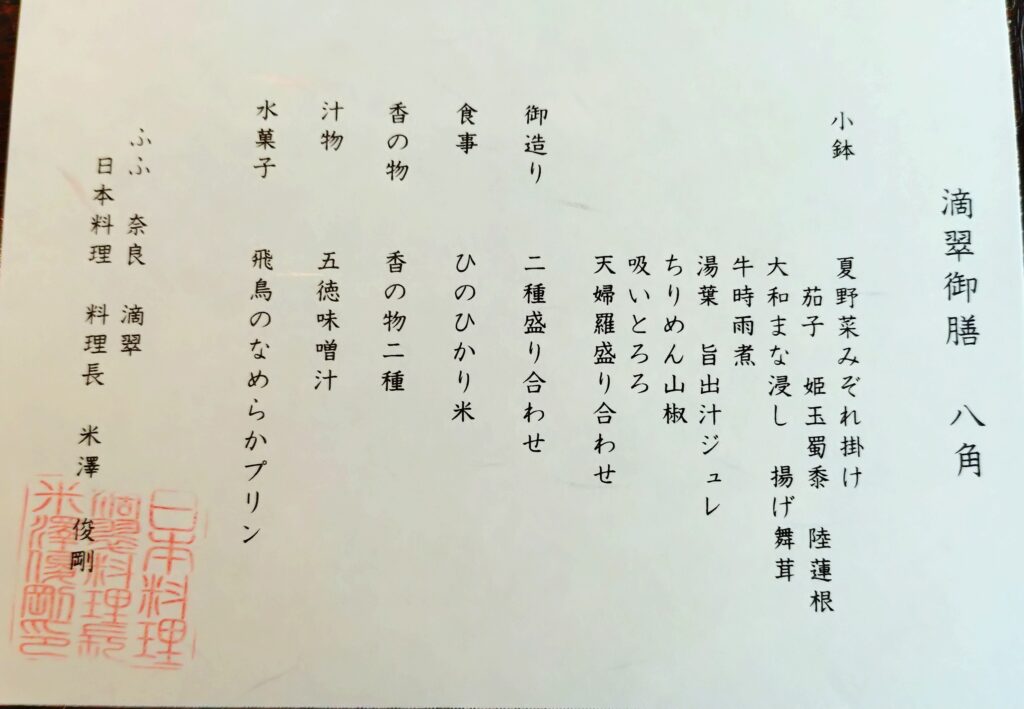 滴翠御膳　八角
小鉢　夏野菜みぞれ掛け
茄子　姫玉蜀黍　陸蓮根
大和まな浸し　揚げ舞茸
牛時雨煮
湯葉　旨出汁ジュレ
ちりめん山椒
吸いとろろ
天婦羅盛り合わせ
御造り　二種盛り合わせ
食事　ひのひかり米
香の物　香の物二種
汁物　五徳味噌汁
水菓子　飛鳥のなめらかプリン
ふふ　奈良　滴翠
日本料理　料理長　米澤　俊剛
日本料理
滴翠料理長
米澤俊剛印